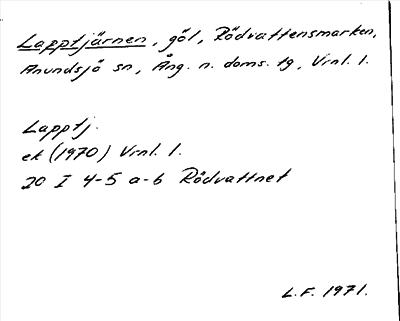 Lapptjärnen, göl, Rödvattensmarken,
Anundsjö sn, Ång. n. doms. tg, Vrnl. l.
Lapptj.
ek (1970) Vrnl. l.
20 I 4-5 a-b Rödvattnet
L.F. 1971.